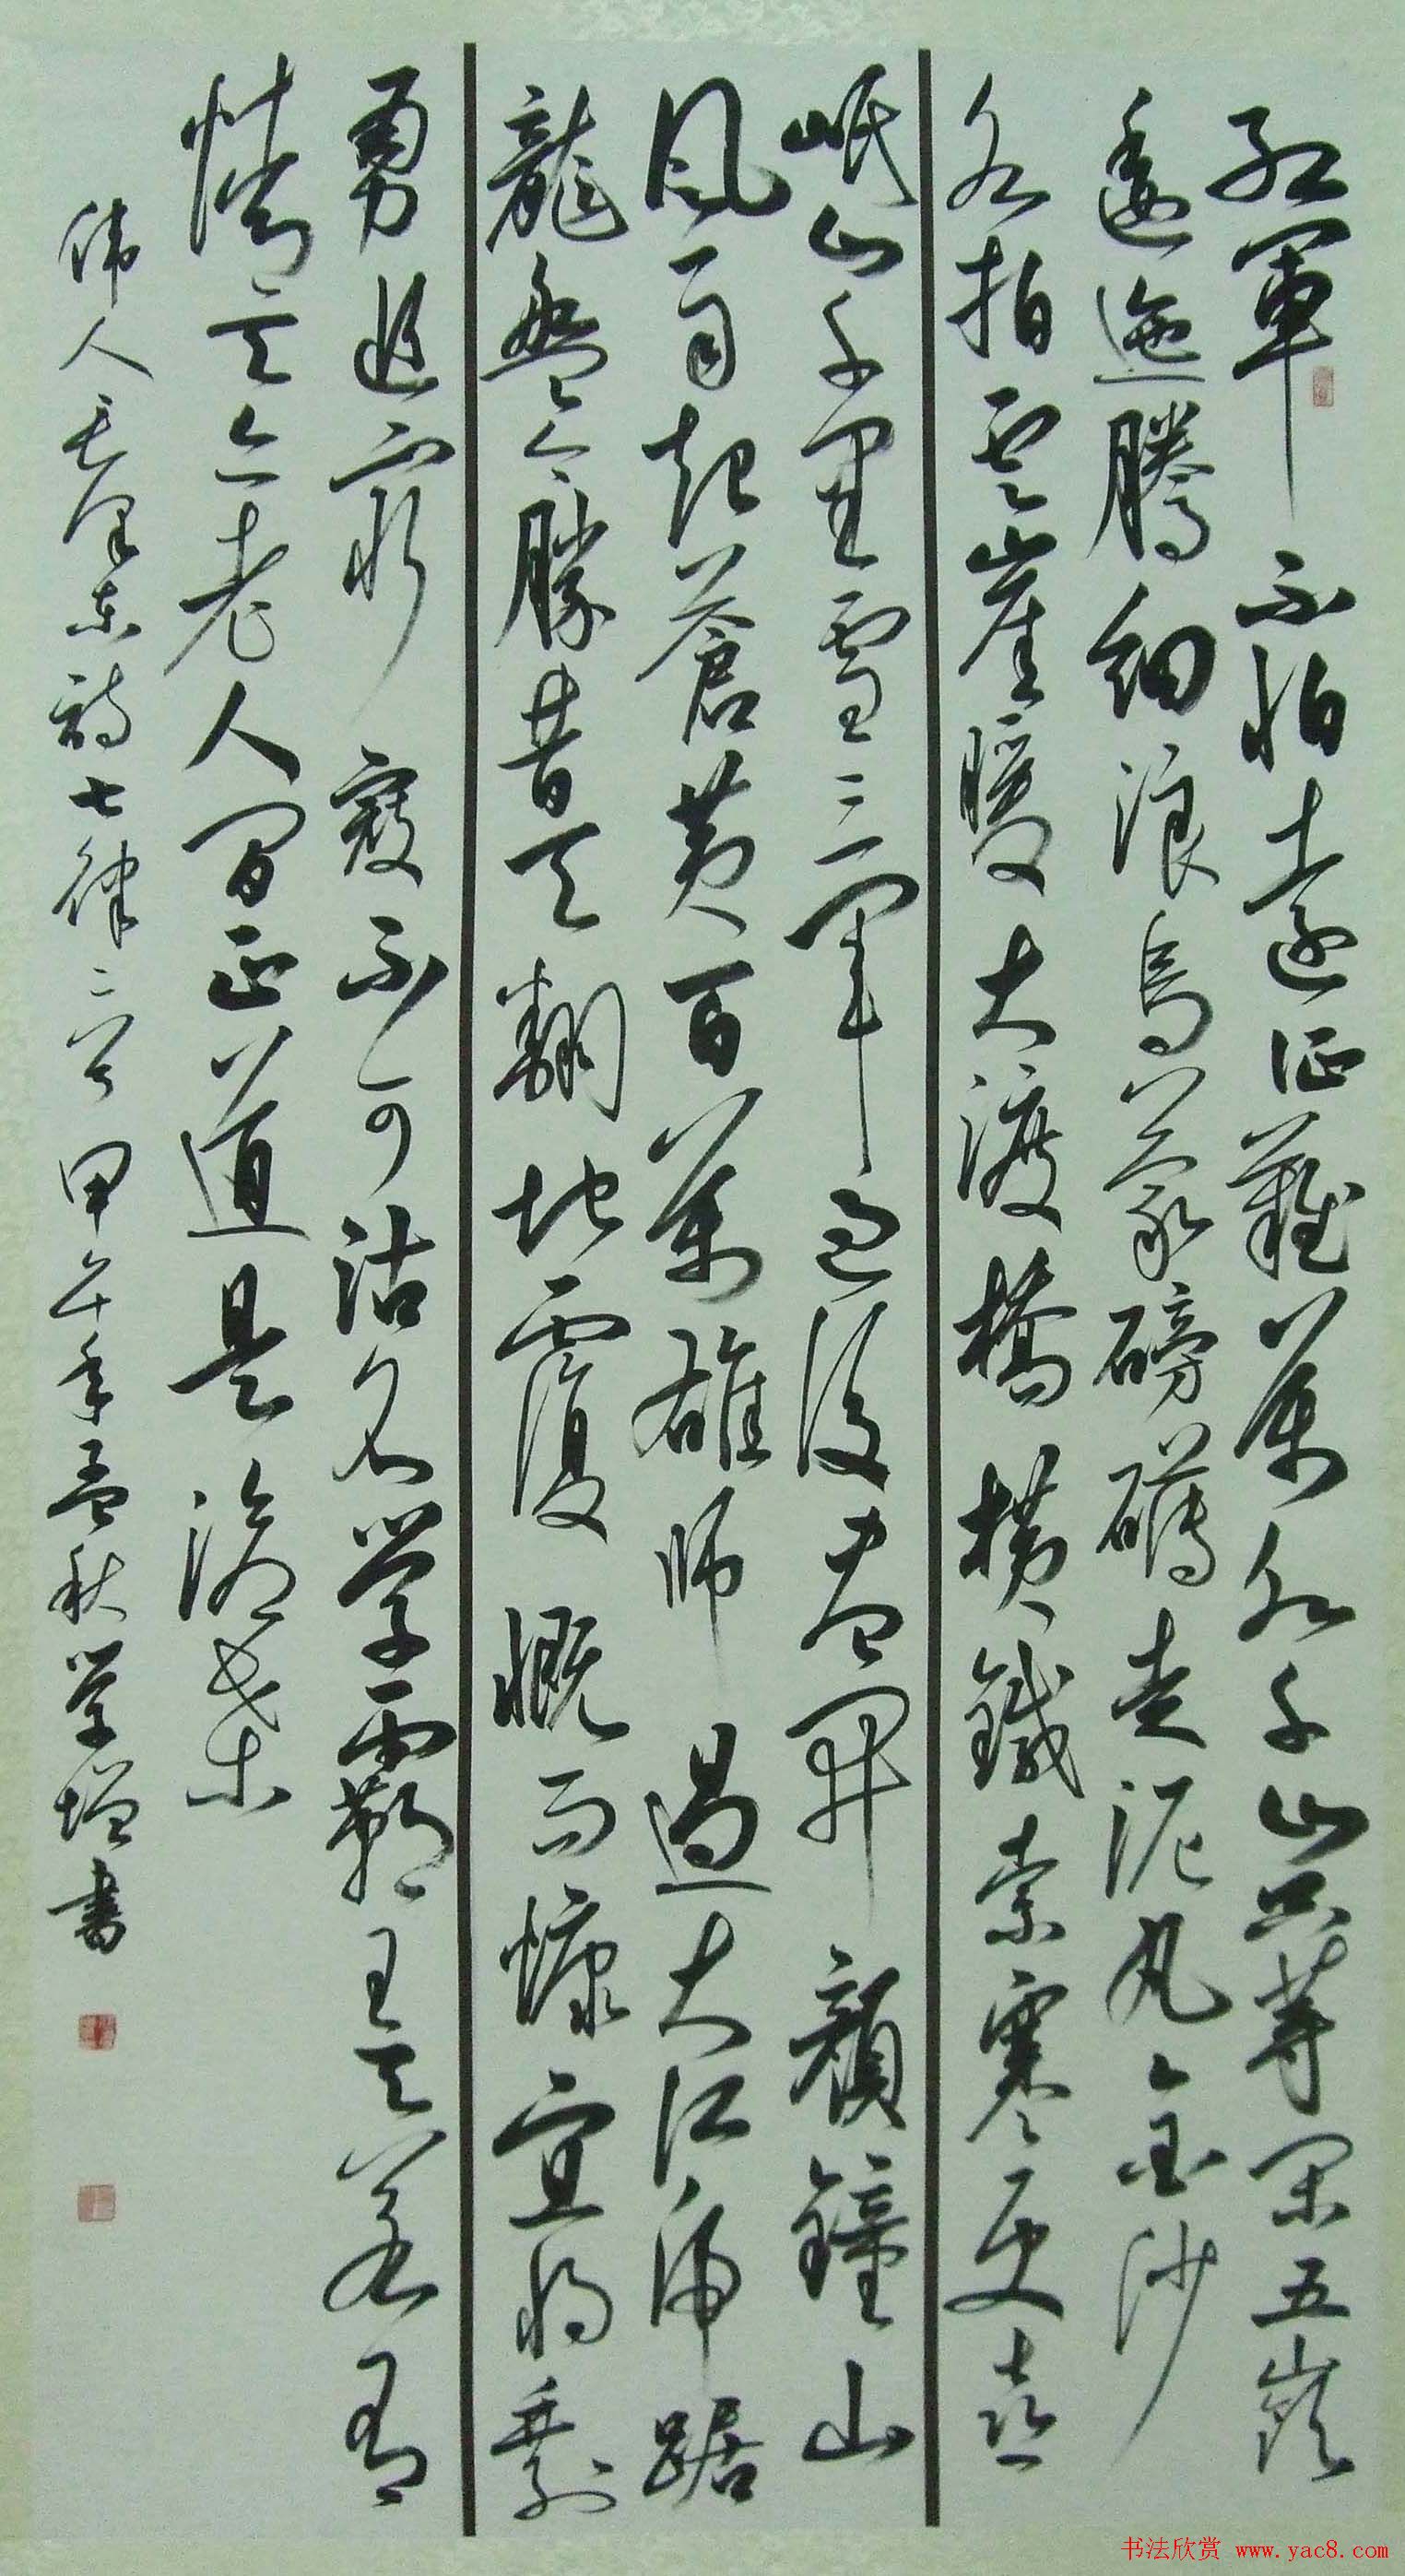 红軍不怕遠征難萬水千山只等閑五嶺
逶迤騰細浪烏蒙磅礴走泥丸金沙
水拍雲崖暖大渡橋橫鐵索寒更喜
岷山千里雪三軍過後盡開顏鐘山
風雨起蒼黄百萬雄师過大江虎踞
龍盤今勝昔天翻地覆慨而慷宜将剩
勇追窮寇不可沽名学霸王天若有
情天亦老人间正道是滄桑
伟人毛泽东詩七律二首甲午年孟秋学增書
书法欣赏 www.yac8.com